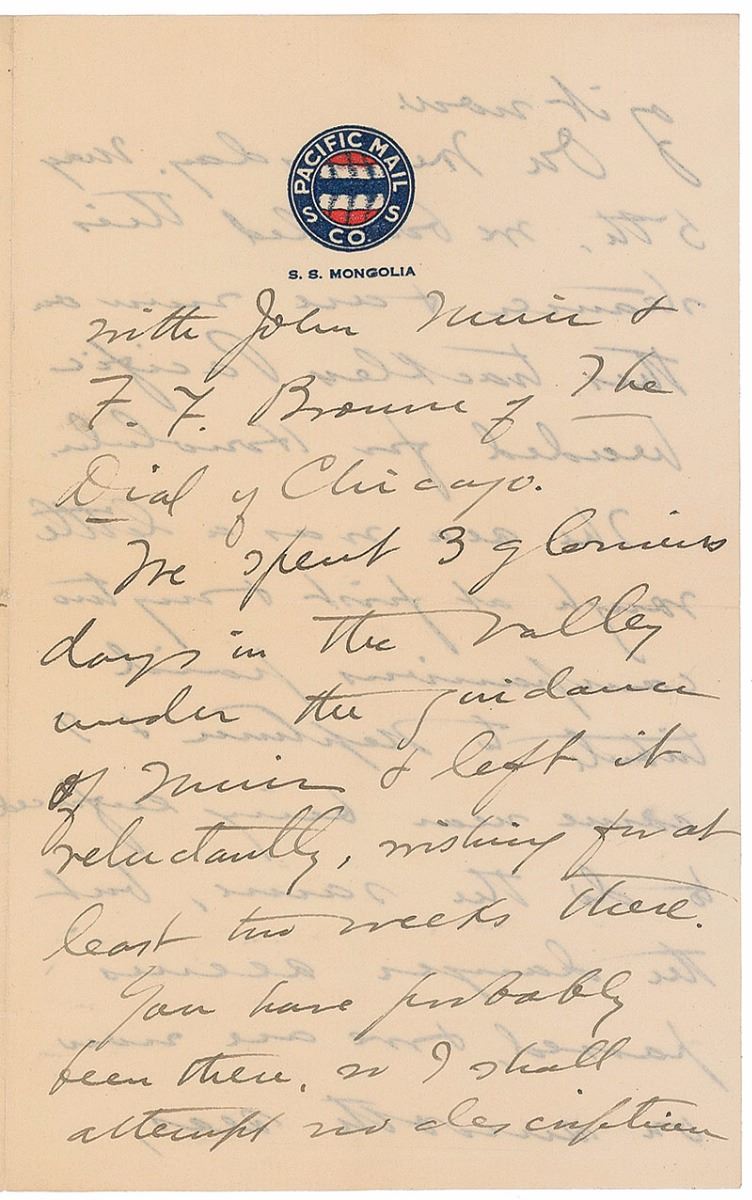 PACIFIC MAIL
S S
CO.
S. S. MONGOLIA
with John Muir &
F. F. Browne of The
Dial of Chicago.
We spent 3 glorious
days in the valley
under the guidance
of Muir & left it
reluctantly, wishing for at
least two weeks there.
You have probably
been there, so I shall
attempt no description